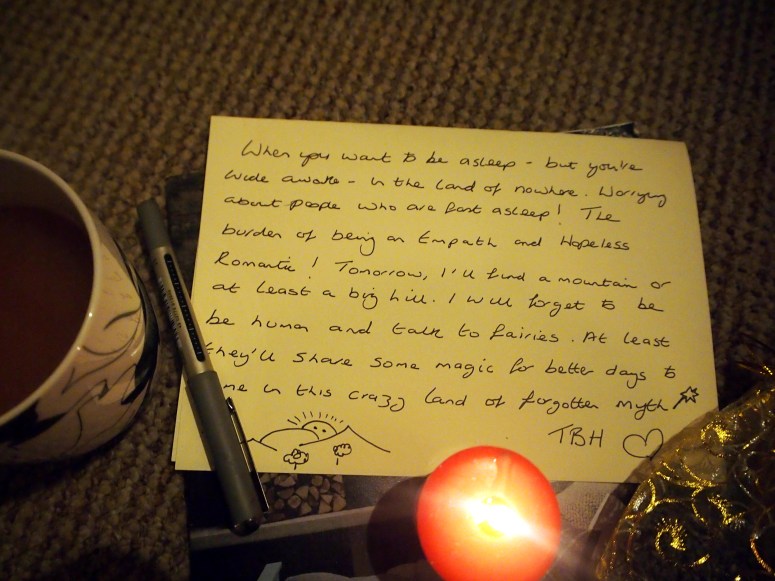 When you want to be asleep - but you're
wide awake - in the land of nowhere. Worrying
about people who are fast asleep! The
burden of being an Empath and Hopeless
Romantic! Tomorrow, I'll find a mountain or
at least a big hill. I will forget to be
be human and talk to fairies. At least
they'll share some magic for better days to
me in this crazy land of forgotten myth
TBH